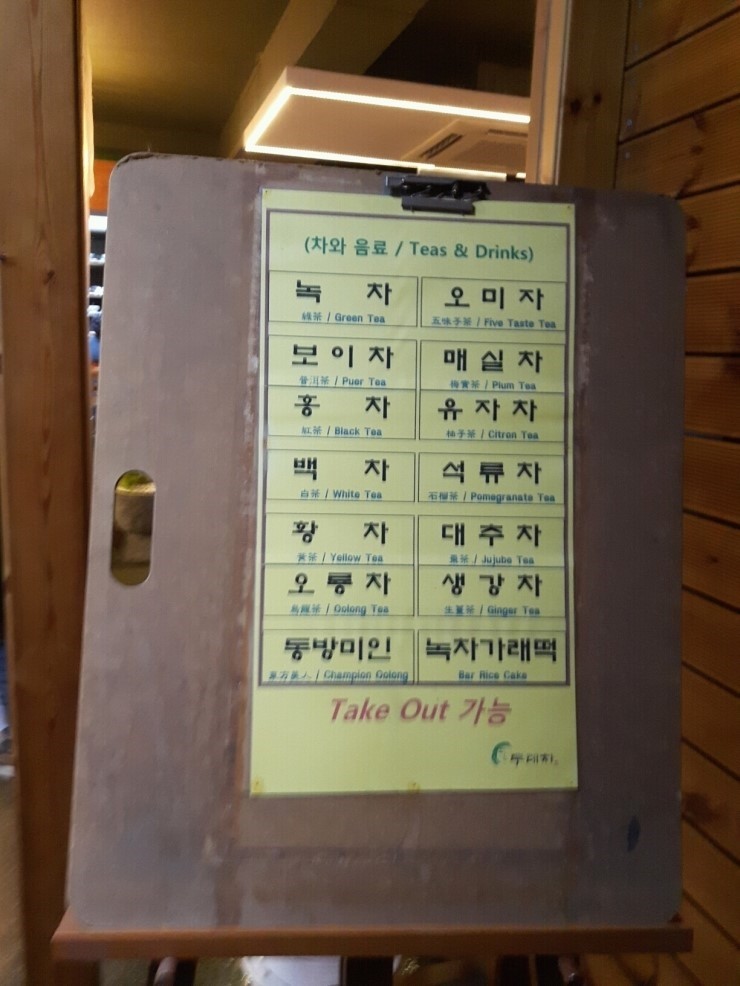 (차와 음료 / Teas & Drinks)
녹 차
綠茶 / Green Tea
오미자
五味子茶 / Five Taste Tea
보이차
普洱茶 / Puer Tea
매실차
梅實茶 / Plum Tea
홍 차
紅茶 / Black Tea
유자차
柚子茶 / Citron Tea
백 차
白茶 / White Tea
석류차
石榴茶 / Pomegranate Tea
황 차
黃茶 / Yellow Tea
대추차
棗茶 / Jujube Tea
오룡차
烏龍茶 / Oolong Tea
생강차
生薑茶 / Ginger Tea
동방미인
東方美人 / Champion Oolong
녹차가래떡
Bar Rice Cake
Take Out 가능